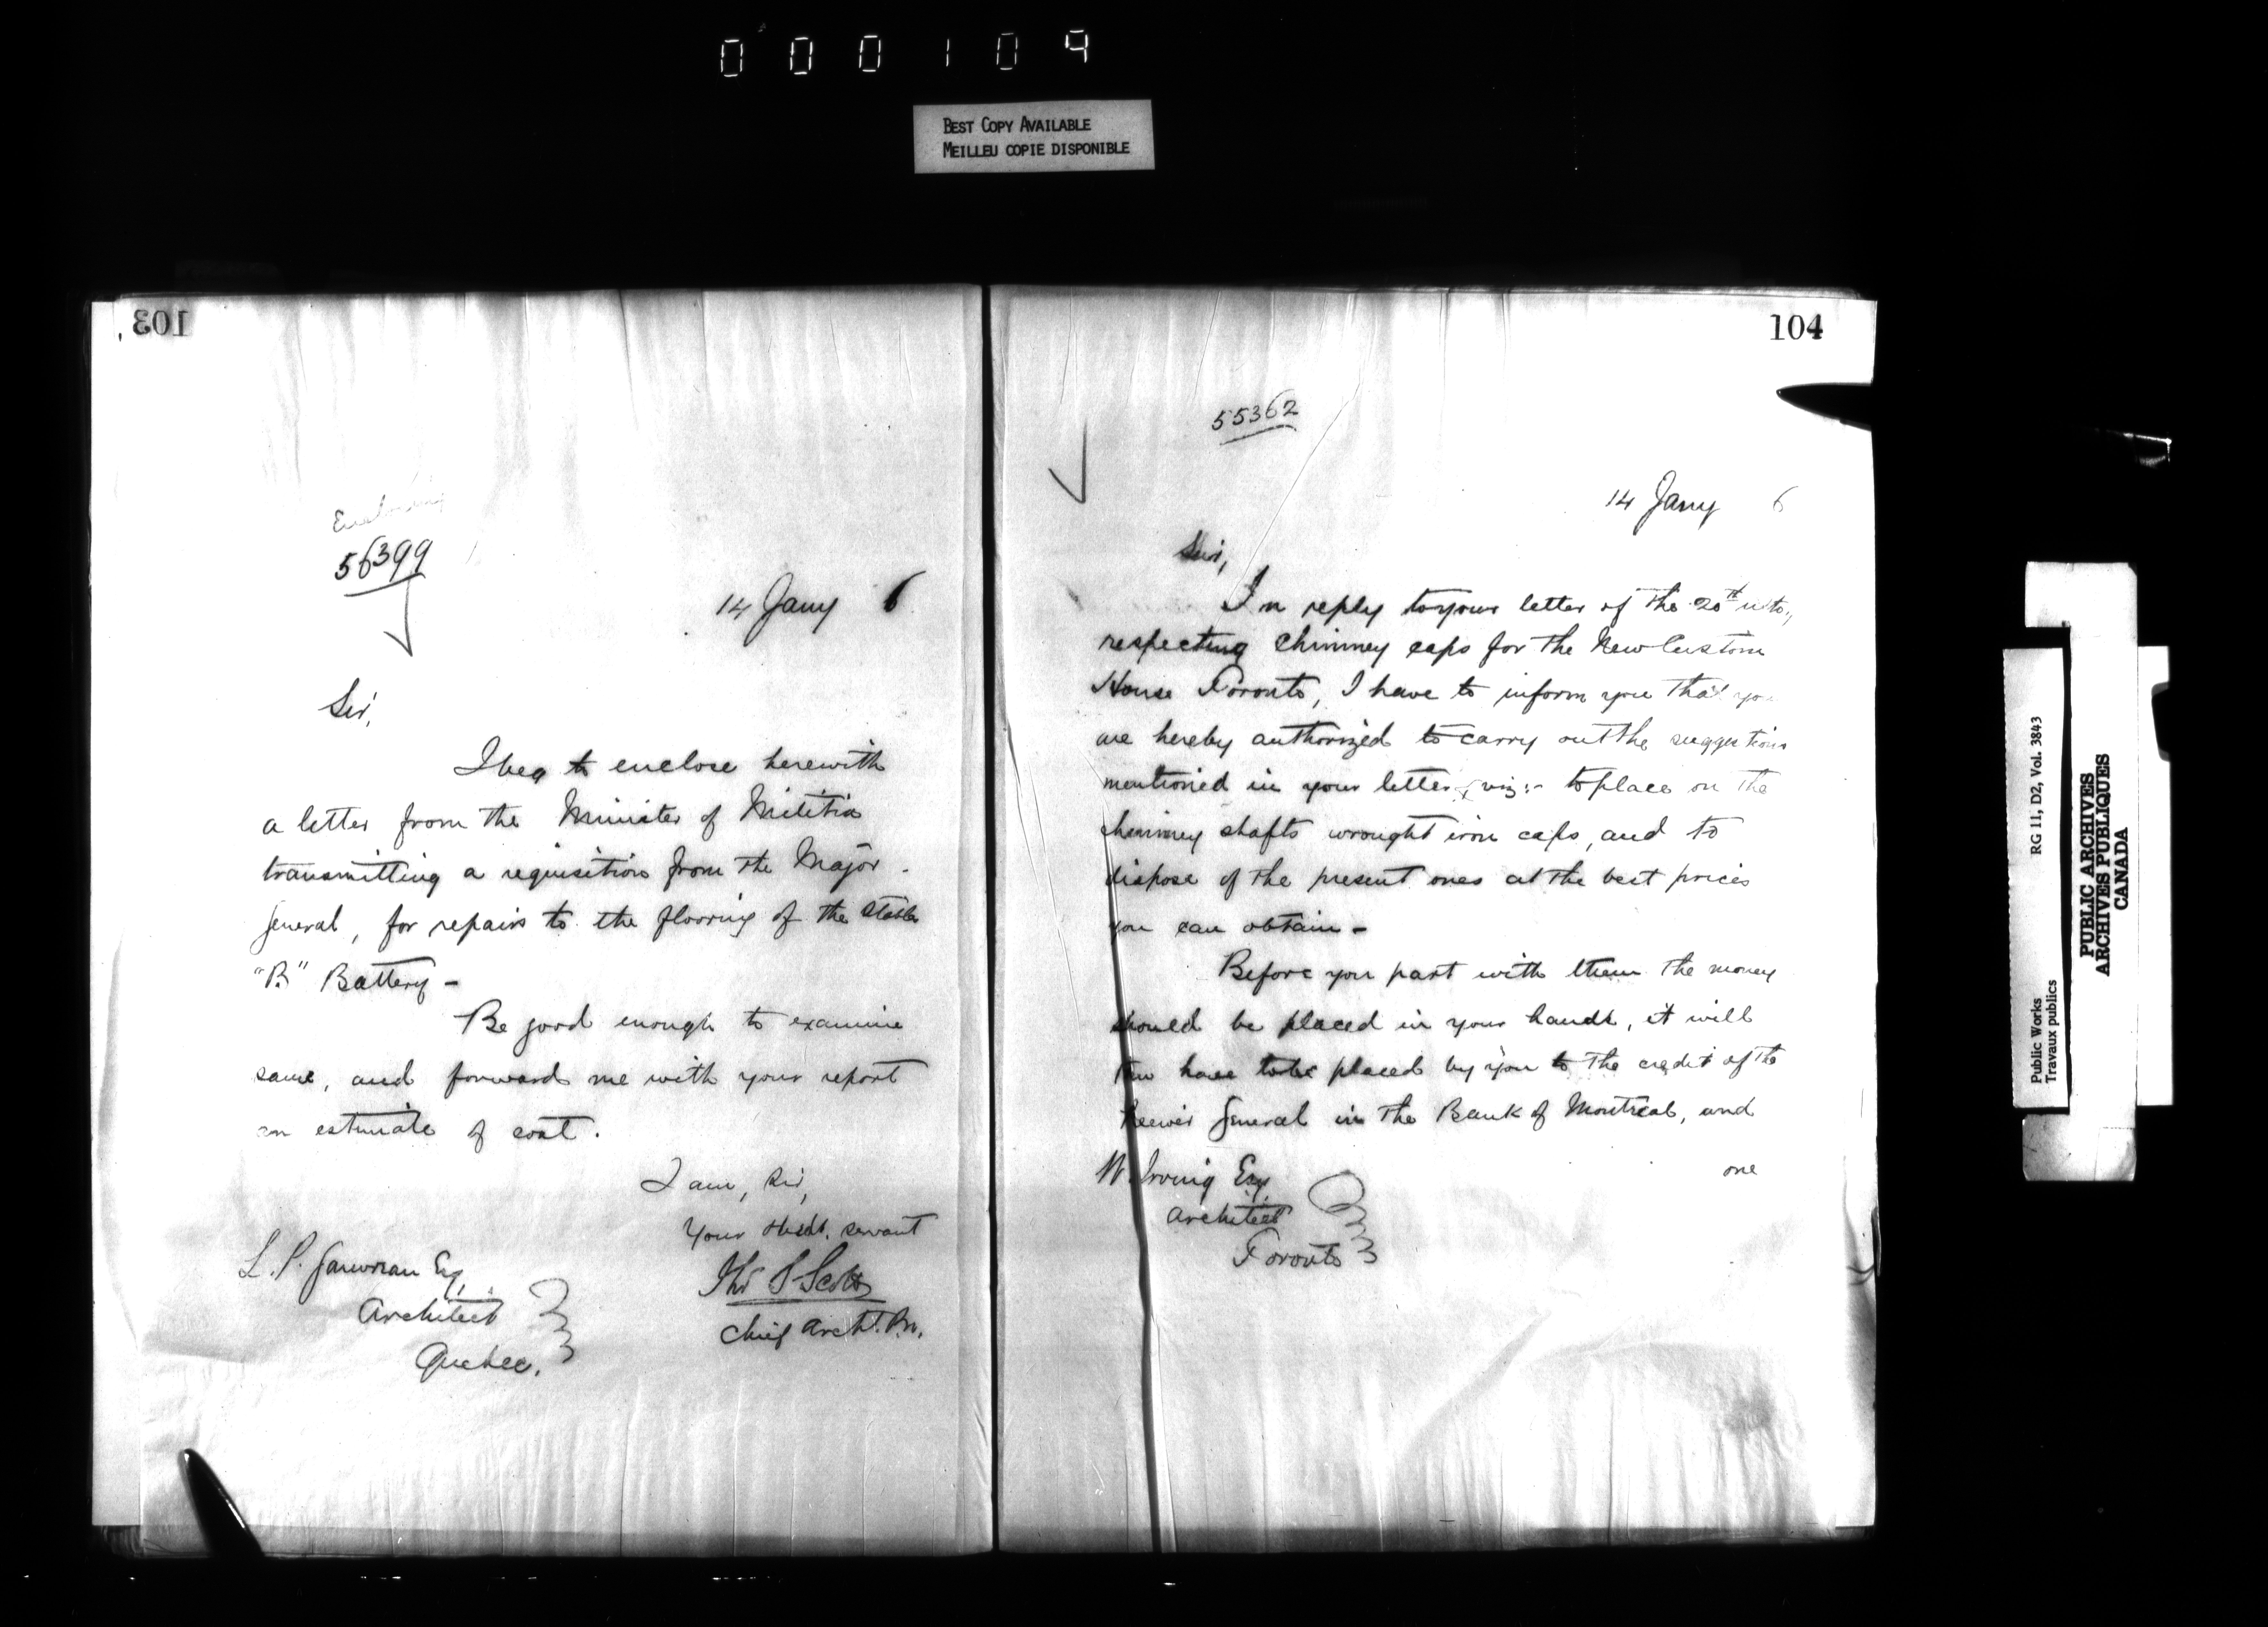 000109
BEST COPY AVAILABLE
MEILLEU COPIE DISPONIBLE
103
Enclosing
56399
14 Jany 6
Sir,
I beg to enclose herewith
a letter from the Minister of Militia
transmitting a requisition from the Major
General, for repairs to the flooring of the Stable
"B" Battery -
Be good enough to examine
same, and forward me with your report
an estimate of cost.
I am, Sir,
Your obedt. servant
Thos S Scott
Chief Archt.
L. P. Gauvreau Esq,
Architect
Quebec.
104
55362
14 Jany 6
Sir,
In reply to your letter of the 20th ulto,
respecting chimney caps for the New Custom
House Toronto, I have to inform you that you
are hereby authorized to carry out the suggestions
mentioned in your letter, viz:- to place on the
chimney shafts wrought iron caps, and to
dispose of the present ones at the best prices
you can obtain -
Before you part with them the money
should be placed in your hands, it will
have to be placed by you to the credit of the
General in the Bank of Montreal, and
one
W. Irving Esq
Architect
Toronto
Public Works RG 11, D2, Vol. 3843
Travaux publics
PUBLIC ARCHIVES
ARCHIVES PUBLIQUES
CANADA